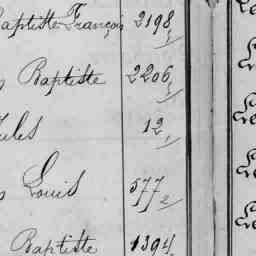 Baptiste François 2198
Baptiste 2206
Jules 12
Louis 577
Baptiste 1394